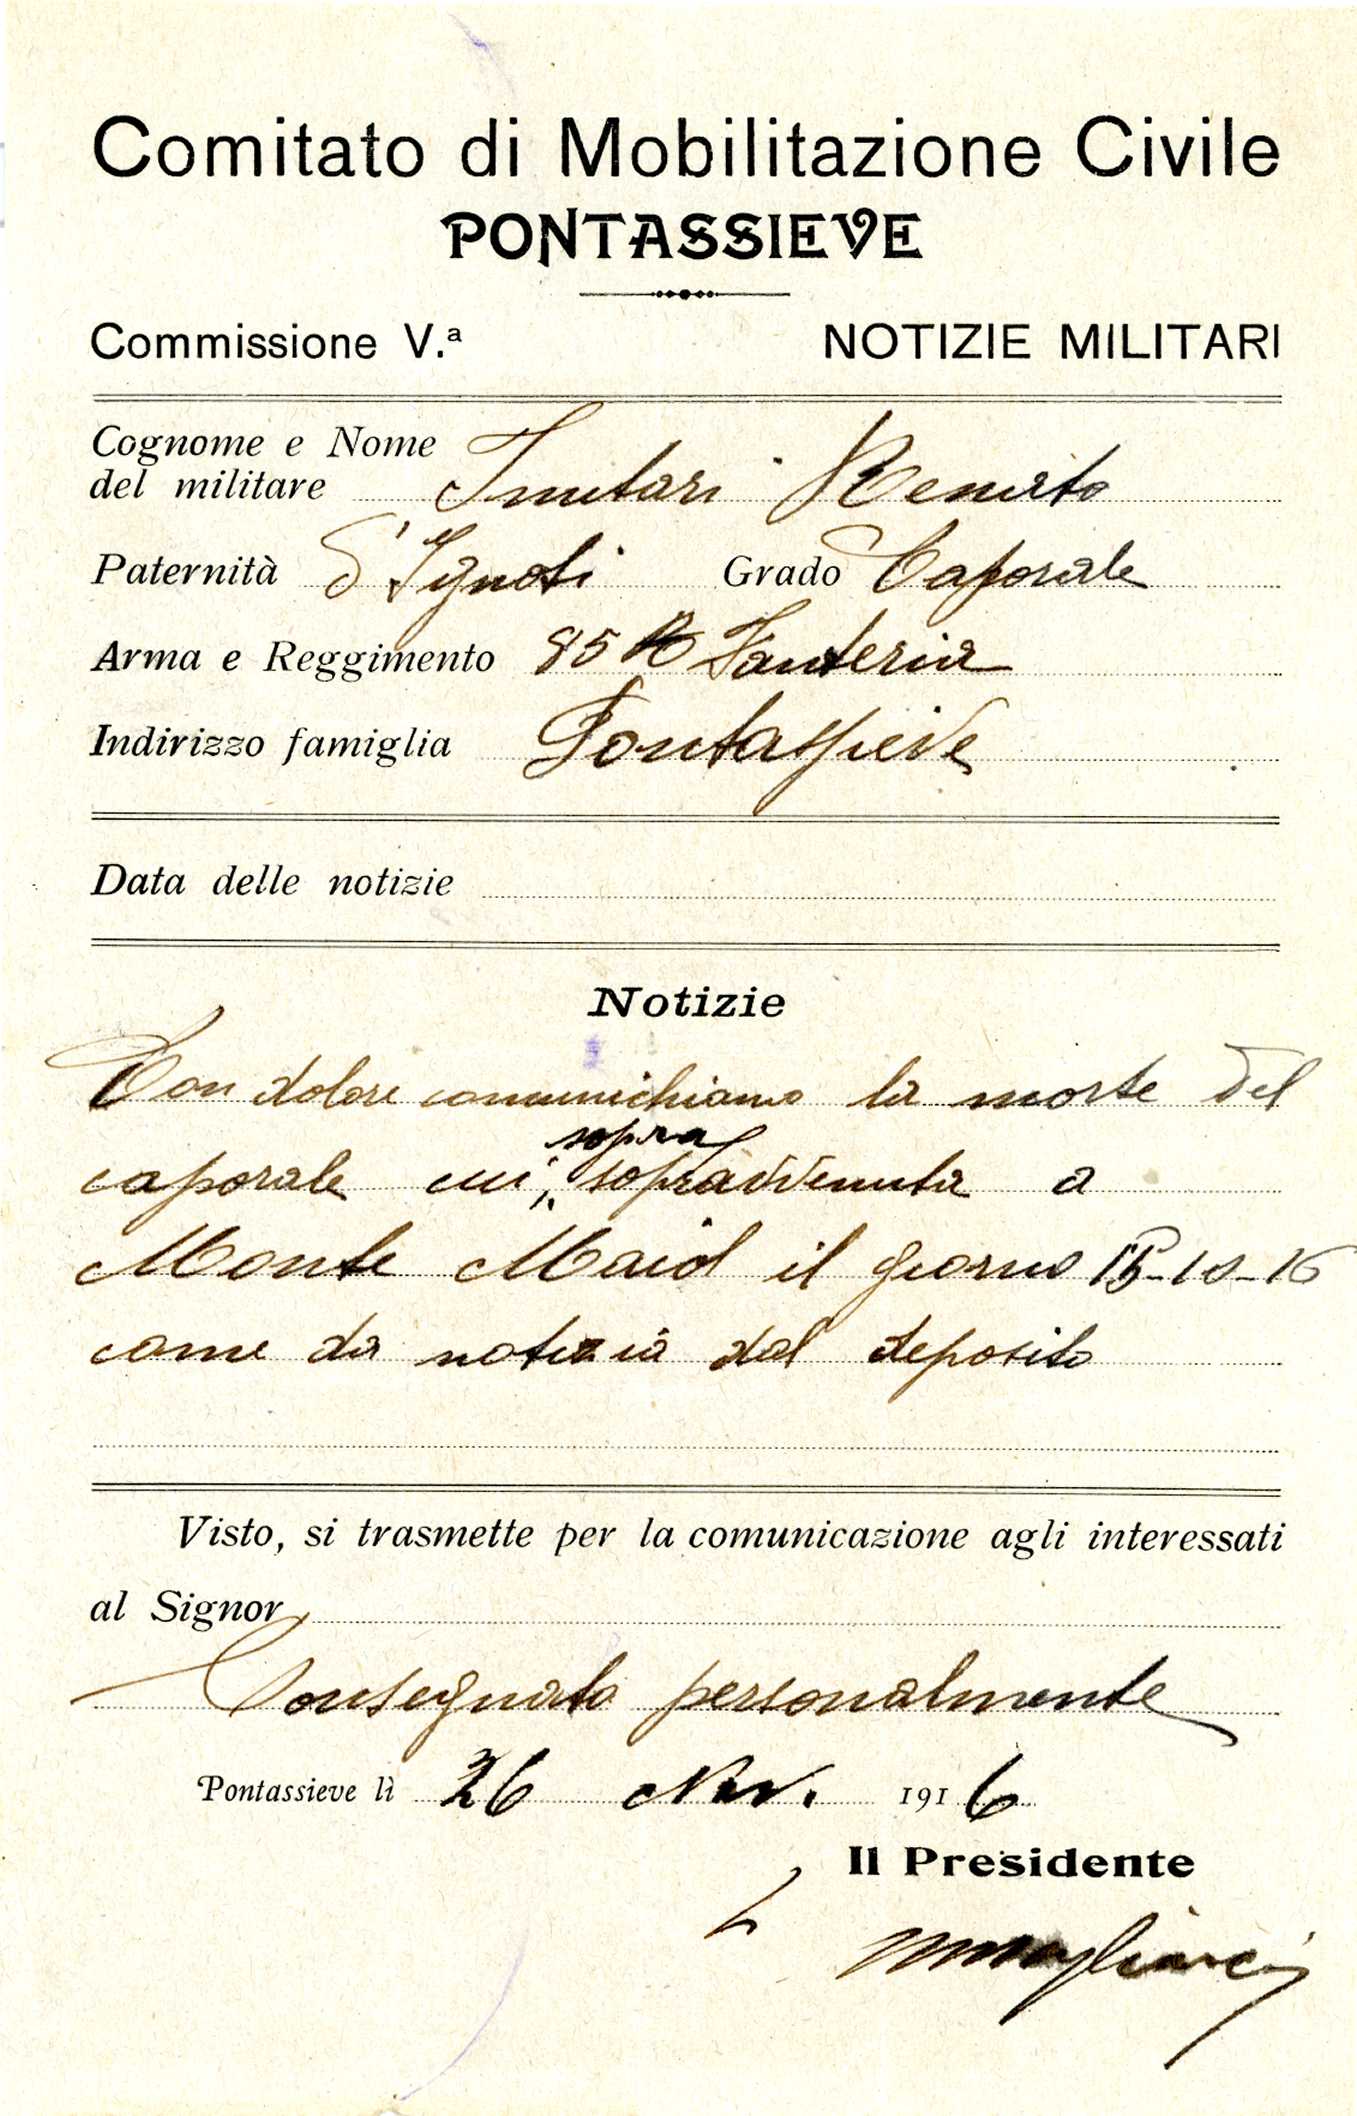 Comitato di Mobilitazione Civile
PONTASSIEVE
Commissione V.ª NOTIZIE MILITARI
Cognome e Nome
del militare Renato
Paternità d'Ignoti Grado Caporale
Arma e Reggimento 85 R Fanteria
Indirizzo famiglia Pontassieve
Data delle notizie
Notizie
Con dolore comunichiamo la morte del
sopra
caporale cui, sopravvenuta a
Monte Maio il giorno 15-10-16
come da notizia dal deposito
Visto, si trasmette per la comunicazione agli interessati
al Signor
Consegnata personalmente
Pontassieve lì 26 Nov. 1916
Il Presidente